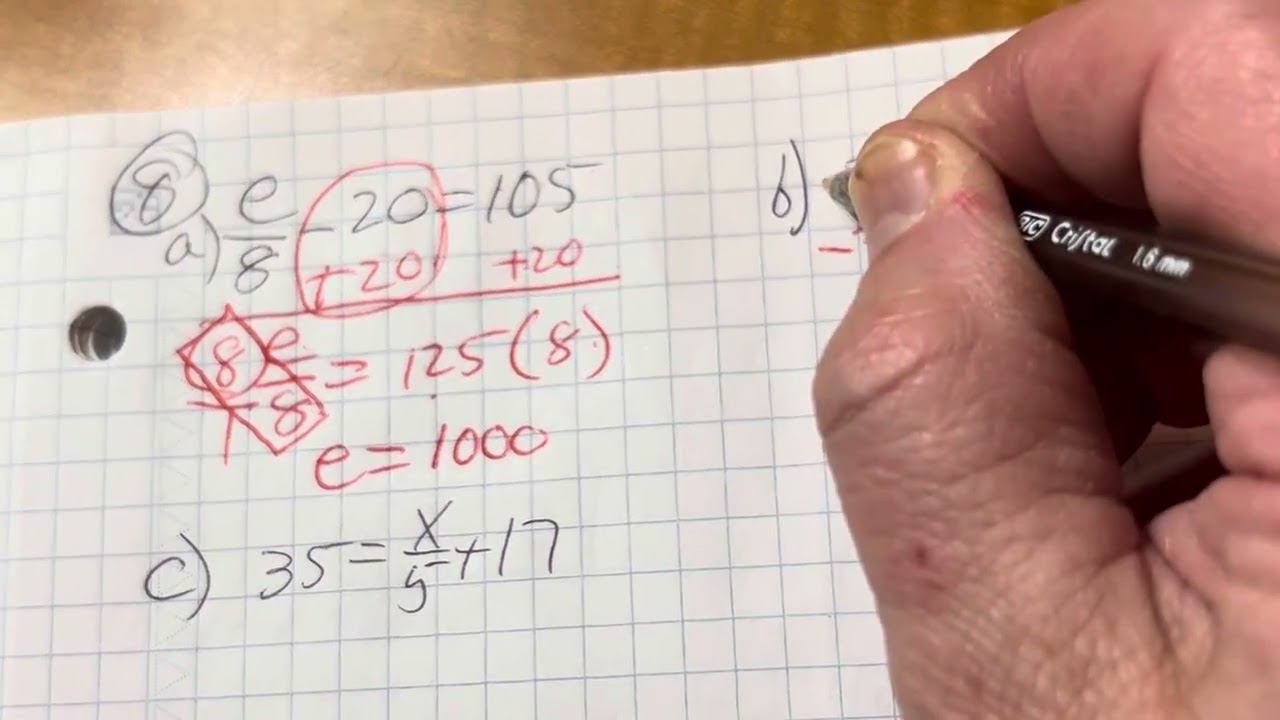 8
a) e/8 - 20 = 105
+20 +20
(8)/1 e/8 = 125(8)
e = 1000
b)
-
c) 35 = x/5 + 17
BIC Cristal 1.6 mm